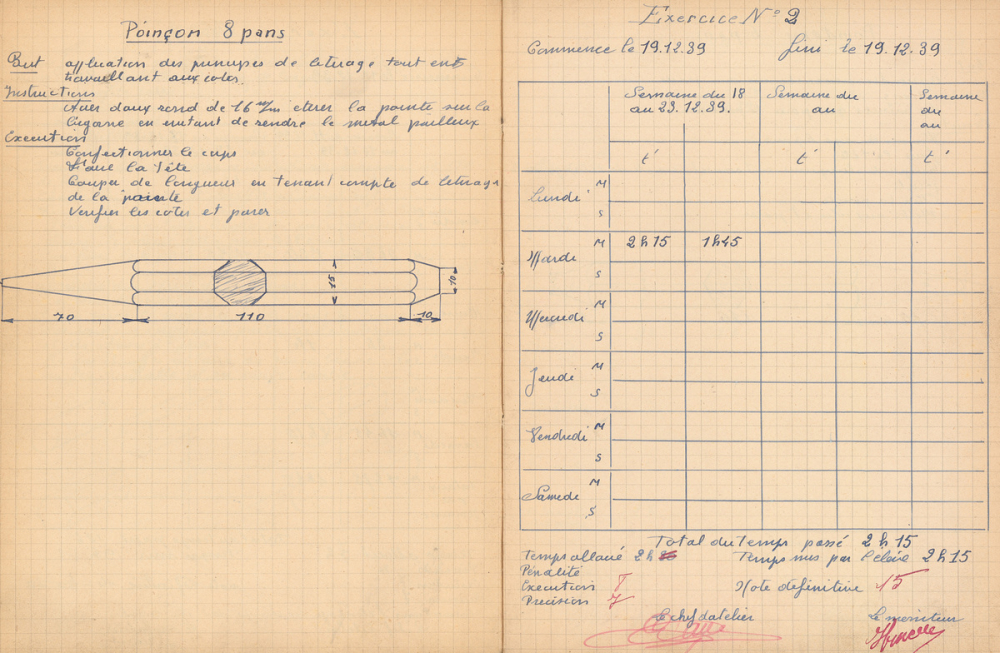 Poinçon 8 pans
But application des principes de l'etirage tout en
travaillant aux cotes.
Instructions
Acier doux rond de 16 m/m etirer la pointe sur la
bigorne en evitant de rendre le metal pailleux
Execution
Confectionner le corps
Faire la tête
Couper de longueur en tenant compte de l'etirage
de la pointe
Verifier les cotes et parer
15
10
70
110
10
Exercice N° 2
Commence le 19.12.39
fini le 19.12.39
Semaine du 18
au 23.12.39.
Semaine du
au
Semaine
du
au
t'
t'
t'
Lundi M
S
Mardi M 2h15 1h45
S
Mercredi M
S
Jeudi M
S
Vendredi M
S
Samedi M
S
Total du temps passé 2h15
Temps alloué 2h
Temps mis par l'elève 2h15
Pénalité
Execution
Note definitive 15
Precision 7
Le chef d'atelier
Le moniteur